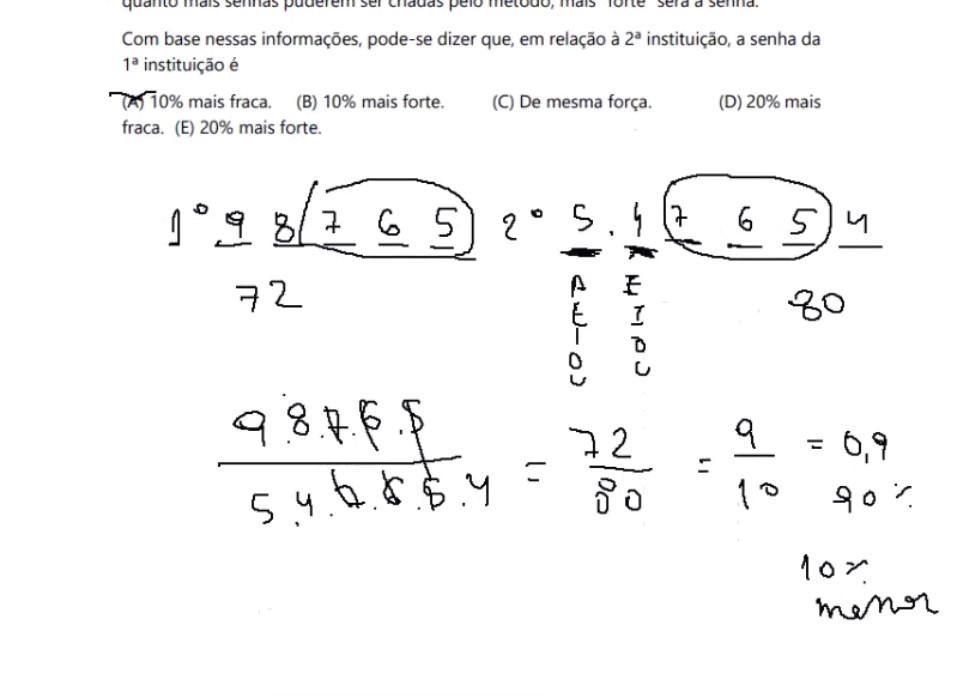 quanto mais senhas puderem ser criadas pelo método, mais "forte" será a senha.
Com base nessas informações, pode-se dizer que, em relação à 2ª instituição, a senha da
1ª instituição é
(A) 10% mais fraca. (B) 10% mais forte. (C) De mesma força. (D) 20% mais
fraca. (E) 20% mais forte.
1º 9 8 7 6 5 2º 5 . 4 7 6 5 4
72 80
A E
E I
I O
O U
U
9 8.7.6.5 / 5.4.7.6.5.4 = 72 / 80 = 9 / 10 = 0,9
90%
10%
menor